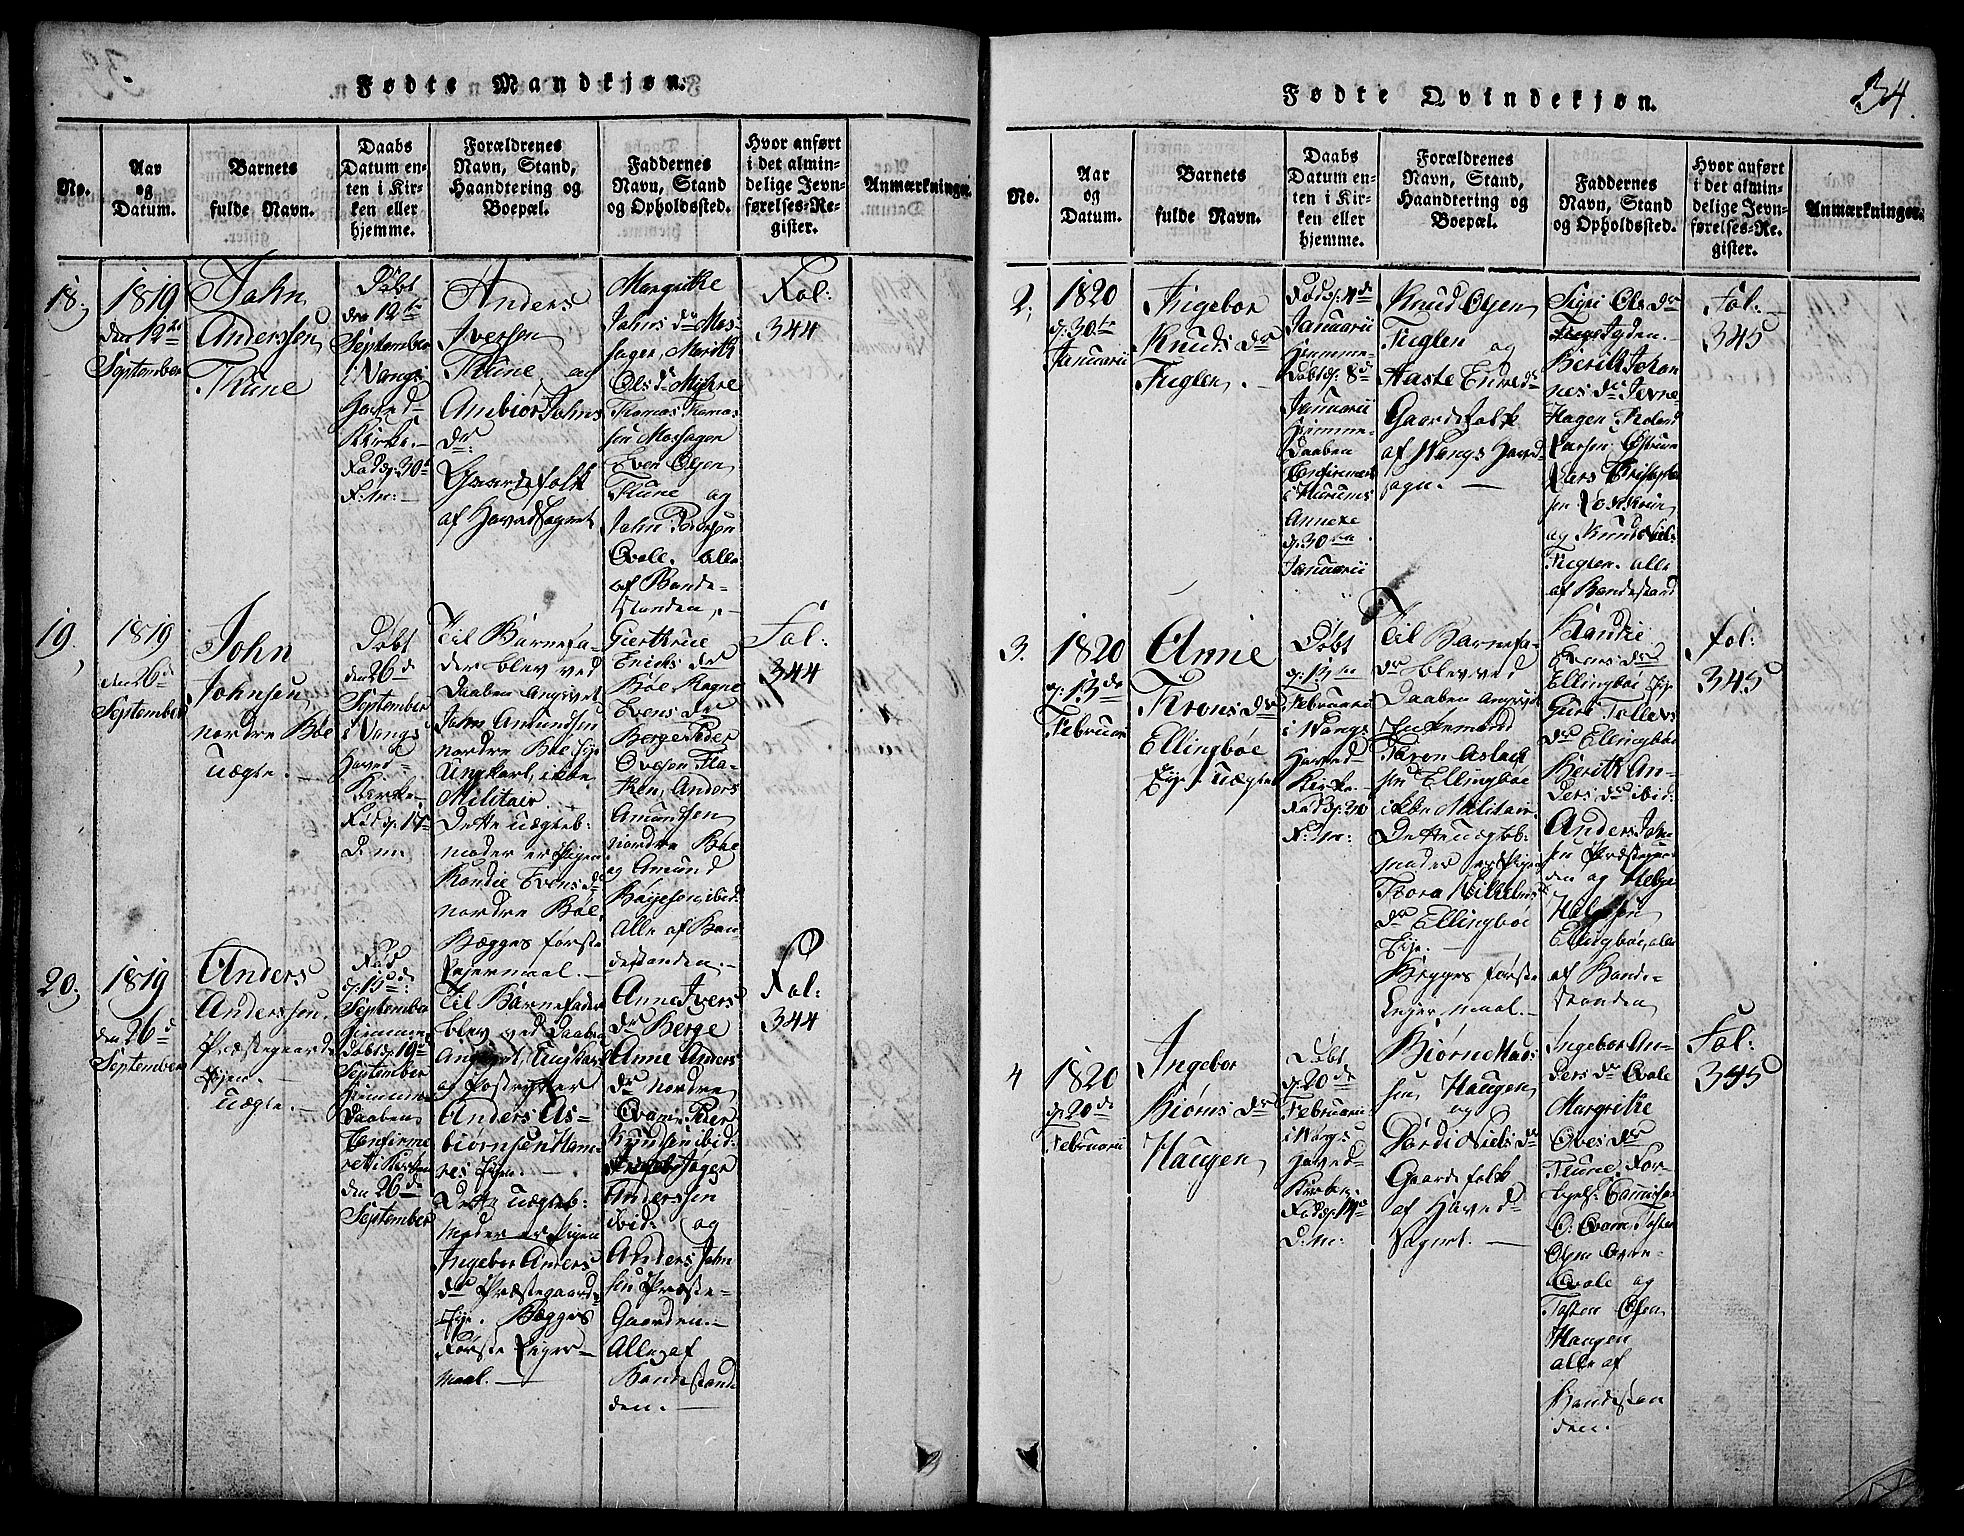 Fødte Mandkjøn.
No.
Aar
og
Datum.
Barnets
fulde Navn.
Daabs
Datum en-
ten i Kir-
ken eller
hjemme.
Forældrenes
Navn, Stand,
Haandtering og
Boepæl.
Faddernes
Navn, Stand
og Opholdssted.
Hvor anført
i det almin-
delige Jevn-
førelses-Re-
gister.
Anmærkninger.
18.
1819
den 12te
September
John
Anderssen
Thune
Døbt
den 12te
September
i Vangs
Hoved-
Kirke.
Fød d. 30te
F. M:
Anders
Iversen
Thune og
Ambior Johns
dr
Gaardefolk
af Hovedsognet
Margrithe
Johns dr Mos-
hager, Marith
Ols dr Myhre
Thomas Thomas-
sen Moshagen
Even Olsen
Thune og
John Pedersen
Qvale. alle
af Bonde-
standen.
Fol:
344
19.
1819
den 26de
September
John
Johnsen
nordre Böe
uægte.
Døbt
den 26de
September
i Vangs
Hoved-
Kirke.
Fød d. 17de
D. m.
Til Barnefa-
der blev ved
Daaben Angivet
John Amundsen
nordre Böe Eje
Ungkarl, ikke
Militair.
Dette uægteb:
moder er Pigen
Randie Evens dr
nordre Böe,
Begges første
Lejermaal.
Giertrue
Erichs dr
Böe Ragne
Evens dr
Berge Peder
Ovesen Fla-
ten, Anders
Amundsen
nordre Böe
og Amund
Böyesen ibid:
Alle af Bon-
destanden.
Fol:
344
20.
1819
den 26de
September
Anders
Anderssen
Præstegaards
Ejen.
uægte.
Fød
d. 15de
September
hjemme
døbt d. 19de
September
hjemme
Daaben
Confirme
ret i Kirken
den 26de
September
Til Barnefader
blev ved Daaben
Angivet, Ungkarl
og Postrytter
Anders As-
biörnsen Ham-
res Eje.
Dette uægteb:
Moder er Pigen
Ingebor Anders
dr Præstegaards
Eje. Begges
Første Leger-
maal.
Anne Ivers
dr Berge
Anne Anders
dr nordre
Qvam, Peder
Knudsen ibid:
Anderssen
ibid: og
Anders John
sen Præste-
Gaarden.
Alle af
Bondestand
den.
Fol:
344
Fødte Qvindekjøn.
34.
No.
Aar
og
Datum.
Barnets
fulde Navn.
Daabs
Datum en-
ten i Kir-
ken eller
hjemme.
Forældrenes
Navn, Stand,
Haandtering og
Boepæl.
Faddernes
Navn, Stand
og Opholdssted.
Hvor anført
i det almin-
delige Jevn-
førelses-Re-
gister.
Anmærkninger.
2.
1820
d. 30te
Januarii
Ingebor
Knuds dr
Fuglen.
Fød d. 4de
Januarii
hjemme-
døbt d. 8de
Januarii
hjemme-
Daaben
Confirmert
i Hurums
Annexe
d. 30te
Januarii
Knud Olsen
Fuglen
og
Aaste Endres dr
Gaardefolk
af Vangs Hoved
sogn.
Sigri Ols dr
Berith Johan
nes dr Jevne-
Hagen
Larsen
Lars Christopher
sen
og Knud
Fuglen. alle
af Bondestand
Fol:
345
3.
1820
d. 13de
Februarii
Anne
Trons dr
Ellingböe
Eje, uægte
Døbt
d. 13de
Februarii
i Vangs
Hoved-
Kirke.
Fød d. 30
F. m:
Til Barnefa-
der blev ved
Daaben angivet
Enkemand
Thron Aslach
sen Ellingböe
ikke Militair.
Dette uægteb:
moder er Pigen
Thora Wilhelms
dr Ellingböe
Eje.
Begges første
Legermaal.
Randie
Evens dr
Ellingböe Eje
Guri Tollevs
dr Ellingböe
Berith An-
ders dr ibid:
Anders John
sen Præstegaar
den og Helge
Helgesen
Ellingböe, alle
af Bonde-
standen
Fol:
345
4
1820
d. 20de
Februarii
Ingebor
Biörns dr
Haugen
Døbt
d. 20de
Februarii
i Vangs
Hoved-
Kirke.
Fød d. 14de
D. m:
Biörne Mads
sen Haugen
og
Dordi Niels dr
Gaardefolk
af Hoved-
Sognet.
Ingebor An-
ders dr Qvale
Margrithe
Oves dr
Thune, For-
O. Qvam, Tosten
Olsen Övre-
Qvale og
Tosten Olsen
Haugen
alle af
Bondestan
den.
Fol:
345